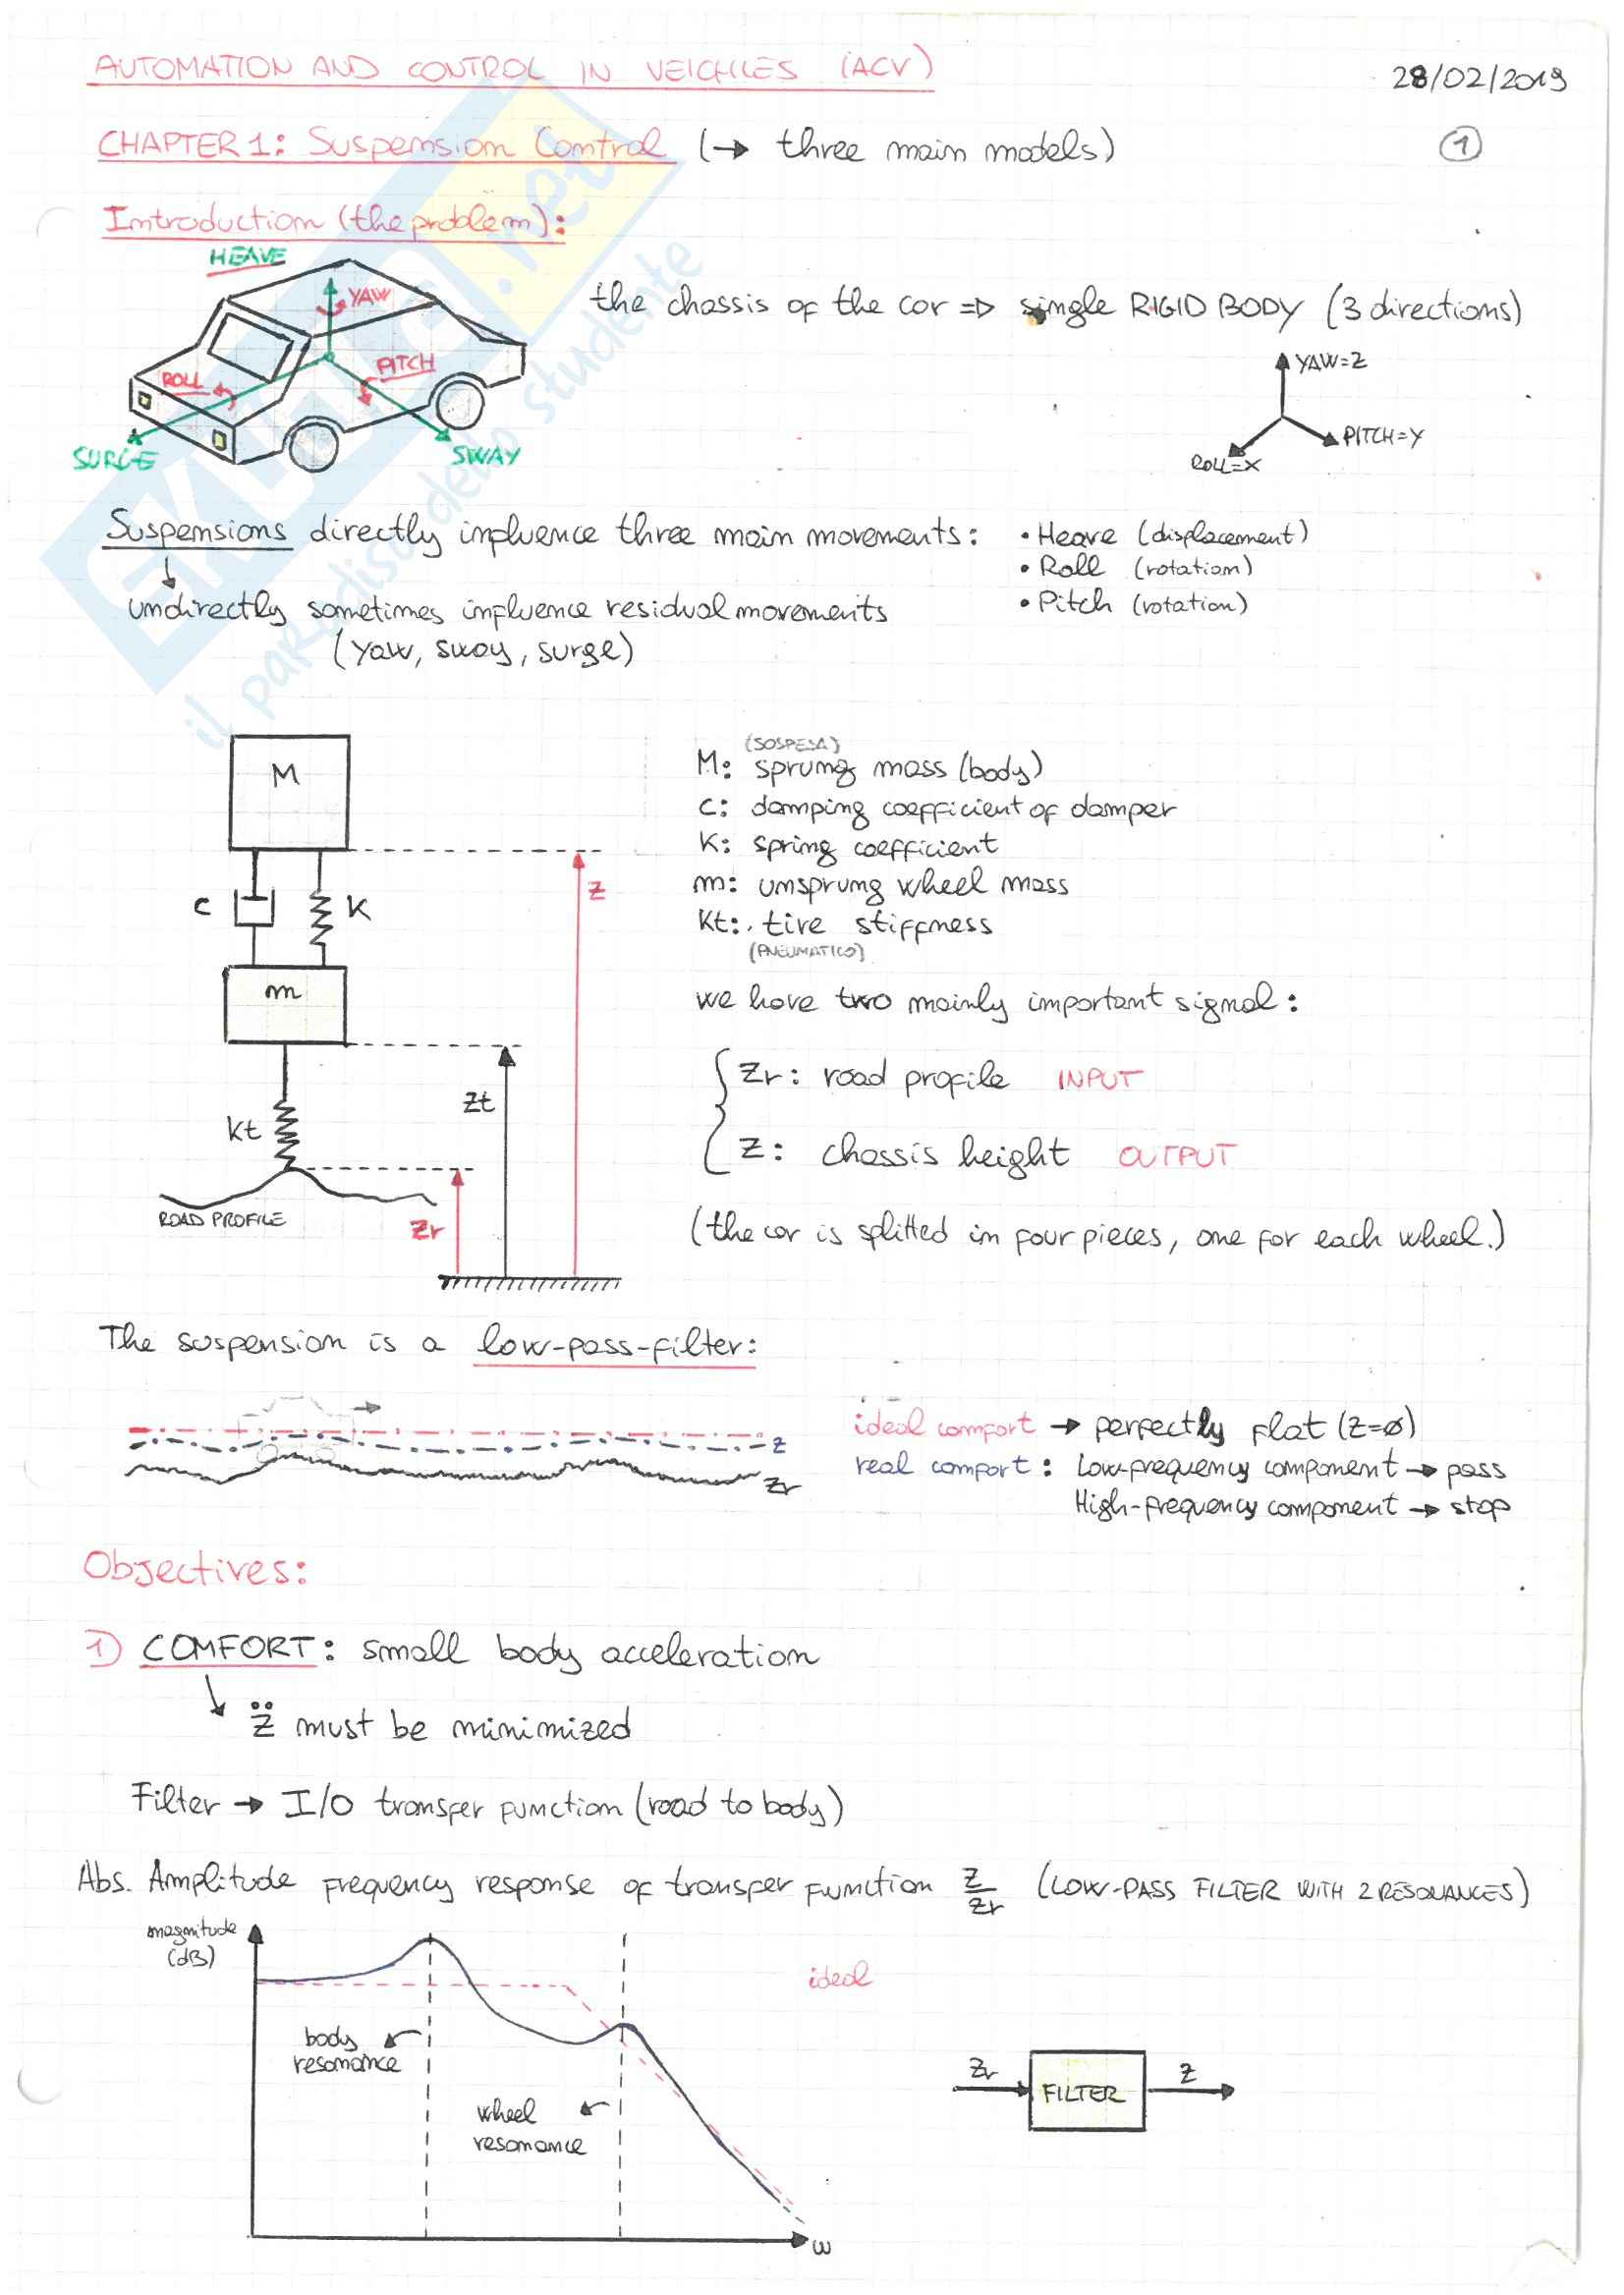 AUTOMATION AND CONTROL IN VEICHLES (ACV)
28/02/2019
CHAPTER 1: Suspension Control (→ three main models)
1
Introduction (the problem):
HEAVE
YAW
ROLL
PITCH
SURGE
SWAY
the chassis of the car ⇒ single RIGID BODY (3 directions)
YAW=Z
PITCH=Y
ROLL=X
Suspensions directly influence three main movements:
• Heave (displacement)
• Roll (rotation)
• Pitch (rotation)
↓
undirectly sometimes influence residual movements
(yaw, sway, surge)
il paradiso dello studente
M
c
K
m
Kt
ROAD PROFILE
Zr
Zt
Z
(SOSPESA)
M: sprung mass (body)
c: damping coefficient of damper
K: spring coefficient
m: unsprung wheel mass
Kt: tire stiffness
(PNEUMATICO)
we have two mainly important signal:
Zr: road profile INPUT
Z: chassis height OUTPUT
(the car is splitted in four pieces, one for each wheel.)
The suspension is a low-pass-filter:
z
Zr
ideal comfort → perfectly flat (Z=ø)
real comfort: Low-frequency component → pass
High-frequency component → stop
Objectives:
1) COMFORT: small body acceleration
↳ z̈ must be minimized
Filter → I/O transfer function (road to body)
Abs. Amplitude frequency response of transfer function Z/Zr (LOW-PASS FILTER WITH 2 RESONANCES)
magnitude
(dB)
ideal
body
resonance
wheel
resonance
ω
Zr
FILTER
Z